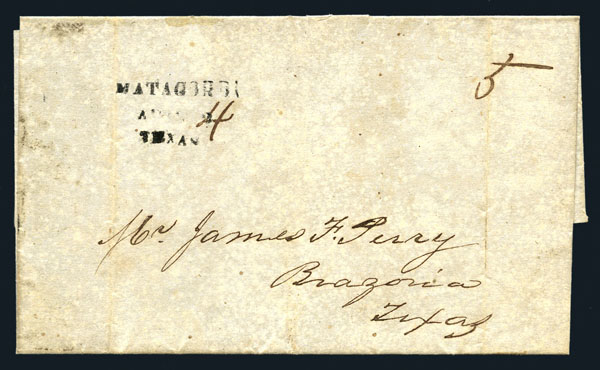 MATAGORDA
4
TEXAS
5
Mr. James F. Perry
Brazoria
Texas